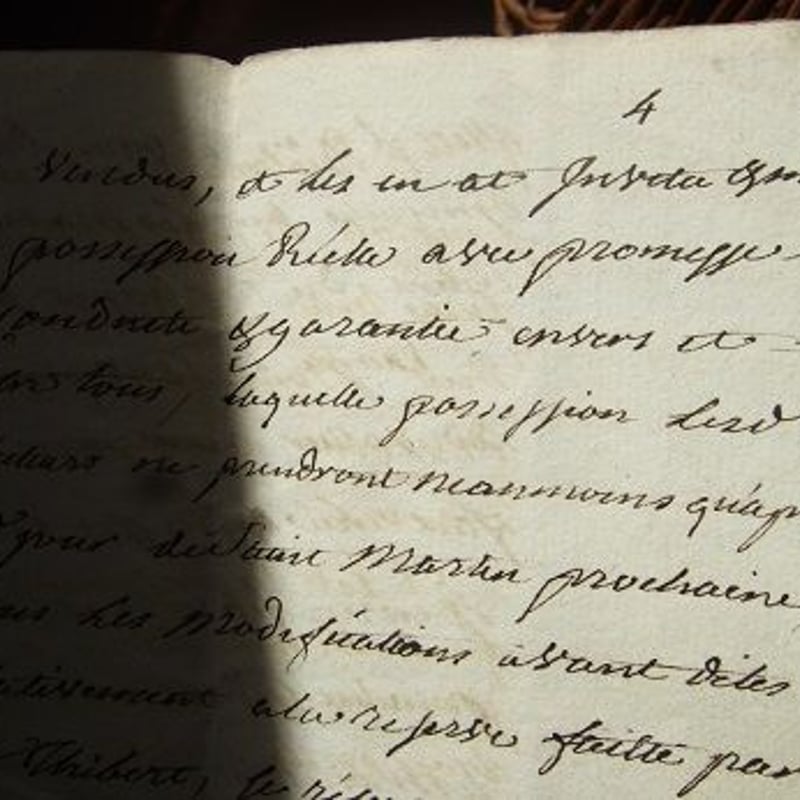 4
Vendus, et les en at Investu &
possession Réelle avec promesse
conduite & garantie envers et
tous, laquelle possession Lesd
ne prendront néanmoins qu'ap
jour de Saint Martin prochaine
Les modifications avant dites
a la reserve faitte par
Thibert,